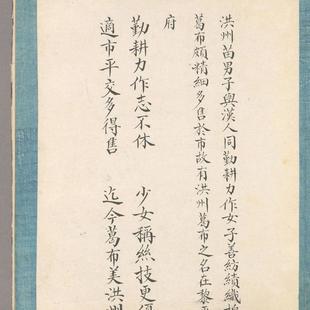 洪州苗男子與漢人同勤耕力作女子善紡績織
葛布頗精細多售於市故有洪州葛布之名在黎平
府
勤耕力作志不休 少女稱絲技更優
適市平交多得售 迄今葛布美洪州